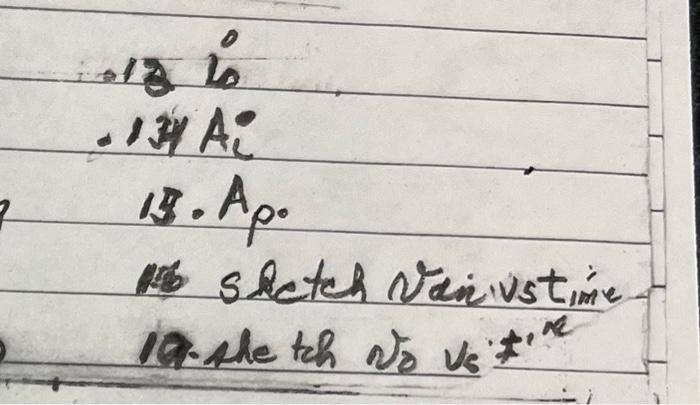 .13 i₀
.14 Aᵢ
15. Aₚ.
16 sketch vin vs time
17. sketch v₀ vs time